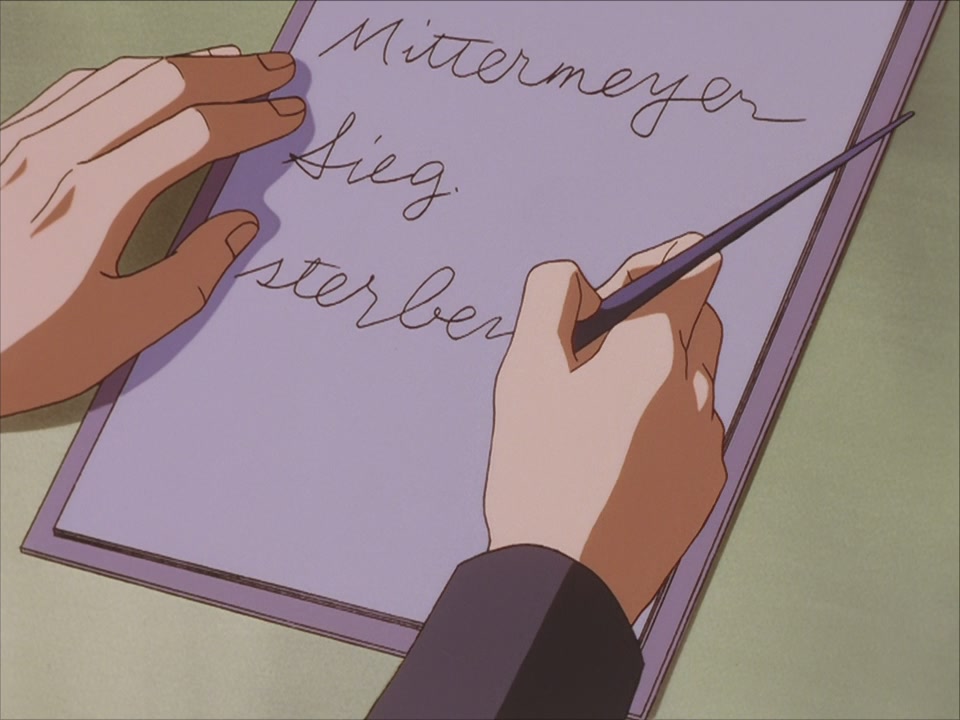 Mittermeyer
Sieg.
sterben